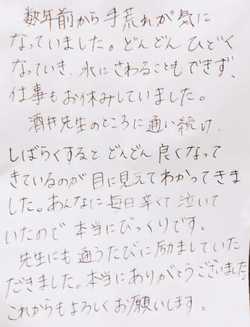 数年前から手荒れが気に
なっていました。どんどんひどく
なっていき、水にさわることもできず、
仕事もお休みしていました。
酒井先生のところに通い続け、
しばらくするとどんどん良くなって
きているのが目に見えてわかってきま
した。あんなに毎日辛くて泣いて
いたので本当にびっくりです。
先生にも通うたびに励ましていた
だきました。本当にありがとうございました
これからもよろしくお願いします。